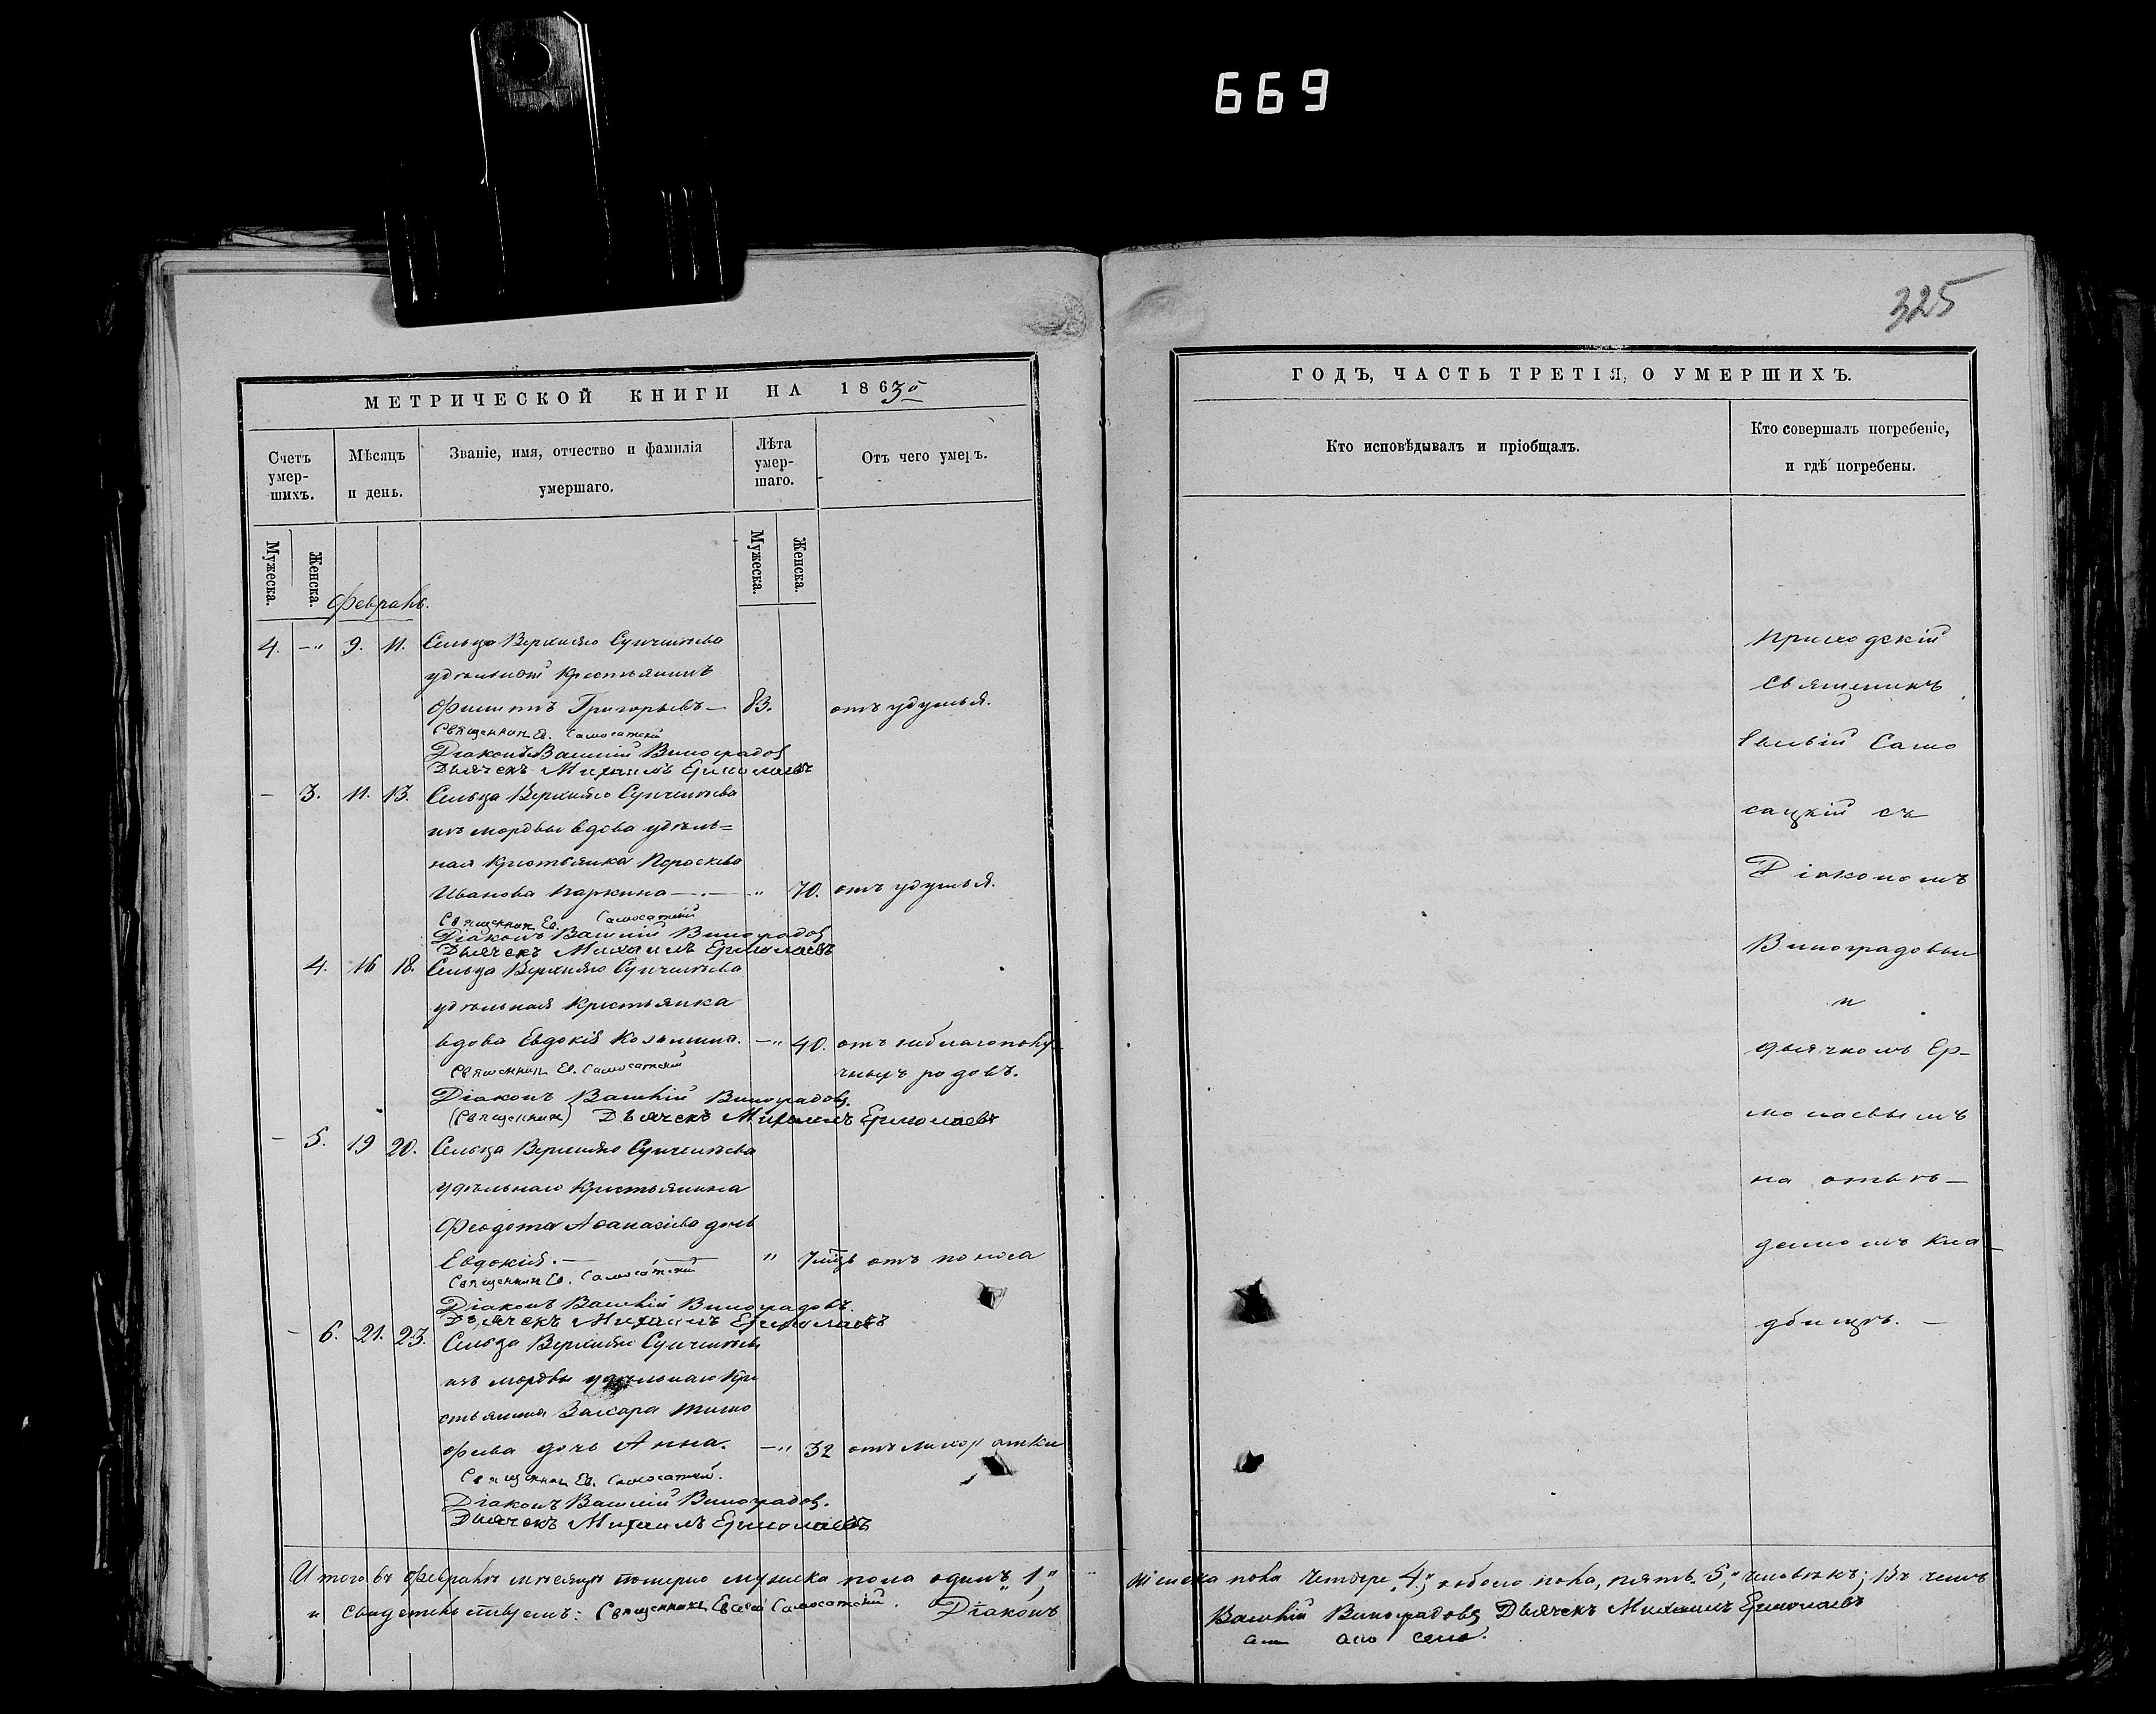 669
325
МЕТРИЧЕСКОЙ КНИГИ НА 1863й
Счетъ умер-шихъ.
Мѣсяцъ и день.
Званіе, имя, отчество и фамилія умершаго.
Лѣта умер-шаго.
Отъ чего умеръ.
Мужеска.
Женска.
Мужеска.
Женска.
Февраль.
4. —„ 9. 11. Сельца Верхняго
удѣльной Крестьянинъ
Филиппъ Григорьевъ — 83. отъ удушья.
Священникъ Ев. Самосатскій
Діаконъ Василій Виноградов
Дьячекъ Михаилъ Ермолаевъ
— 3. 11. 13. Сельца Верхняго
изъ мордвы вдова удѣль=
ная крестьянка Пароскева
Иванова Паркина —.— „ 70. отъ удушья.
Священникъ Ев. Самосатскій
Діаконъ Василій Виноградов
Дьячекъ Михаилъ Ермолаевъ
4. 16 18. Сельца Верхняго
удѣльная Крестьянка
вдова Евдокія —„ 40. отъ неблагополу-
Священникъ Ев. Самосатскій чныхъ родовъ.
Діаконъ Василій Виноградовъ.
(Священник) Дьячекъ Михаилъ Ермолаевъ
— 5. 19 20. Сельца Верхняго
удѣльнаго Крестьянина
Феодота Аѳанасіева дочь
Евдокія. — „ 7 отъ поноса
Священникъ Ев. Самосатскій
Діаконъ Василій Виноградовъ.
Дьячекъ Михаилъ Ермолаевъ
— 6. 21. 23. Сельца Верхняго
изъ мордвы удѣльнаго Кре
стьянина Захара Тимо
феева дочь Анна. —„ 32 отъ лихорадки
Священникъ Ев. Самосатскій.
Діаконъ Василій Виноградов.
Дьячекъ Михаилъ Ермолаевъ
Итого въ Февралѣ мѣсяцѣ померло мужеска пола одинъ „1„
и свидѣтельствуемъ: Священникъ Самосатскій. Діаконъ
ГОДЪ, ЧАСТЬ ТРЕТІЯ, О УМЕРШИХЪ.
Кто исповѣдывалъ и пріобщалъ.
Кто совершалъ погребеніе,
и гдѣ погребены.
приходскій
священникъ
Само
сацкій съ
Діакономъ
Виноградовым
и
дьячкомъ Ер-
молаевымъ
на отве-
денномъ кла-
дбищѣ. —
женска пола четыре „4„, обоего пола, пять „5„ человѣкъ; Въ чемъ
Василій Виноградовъ Дьячекъ Михаилъ Ермолаевъ